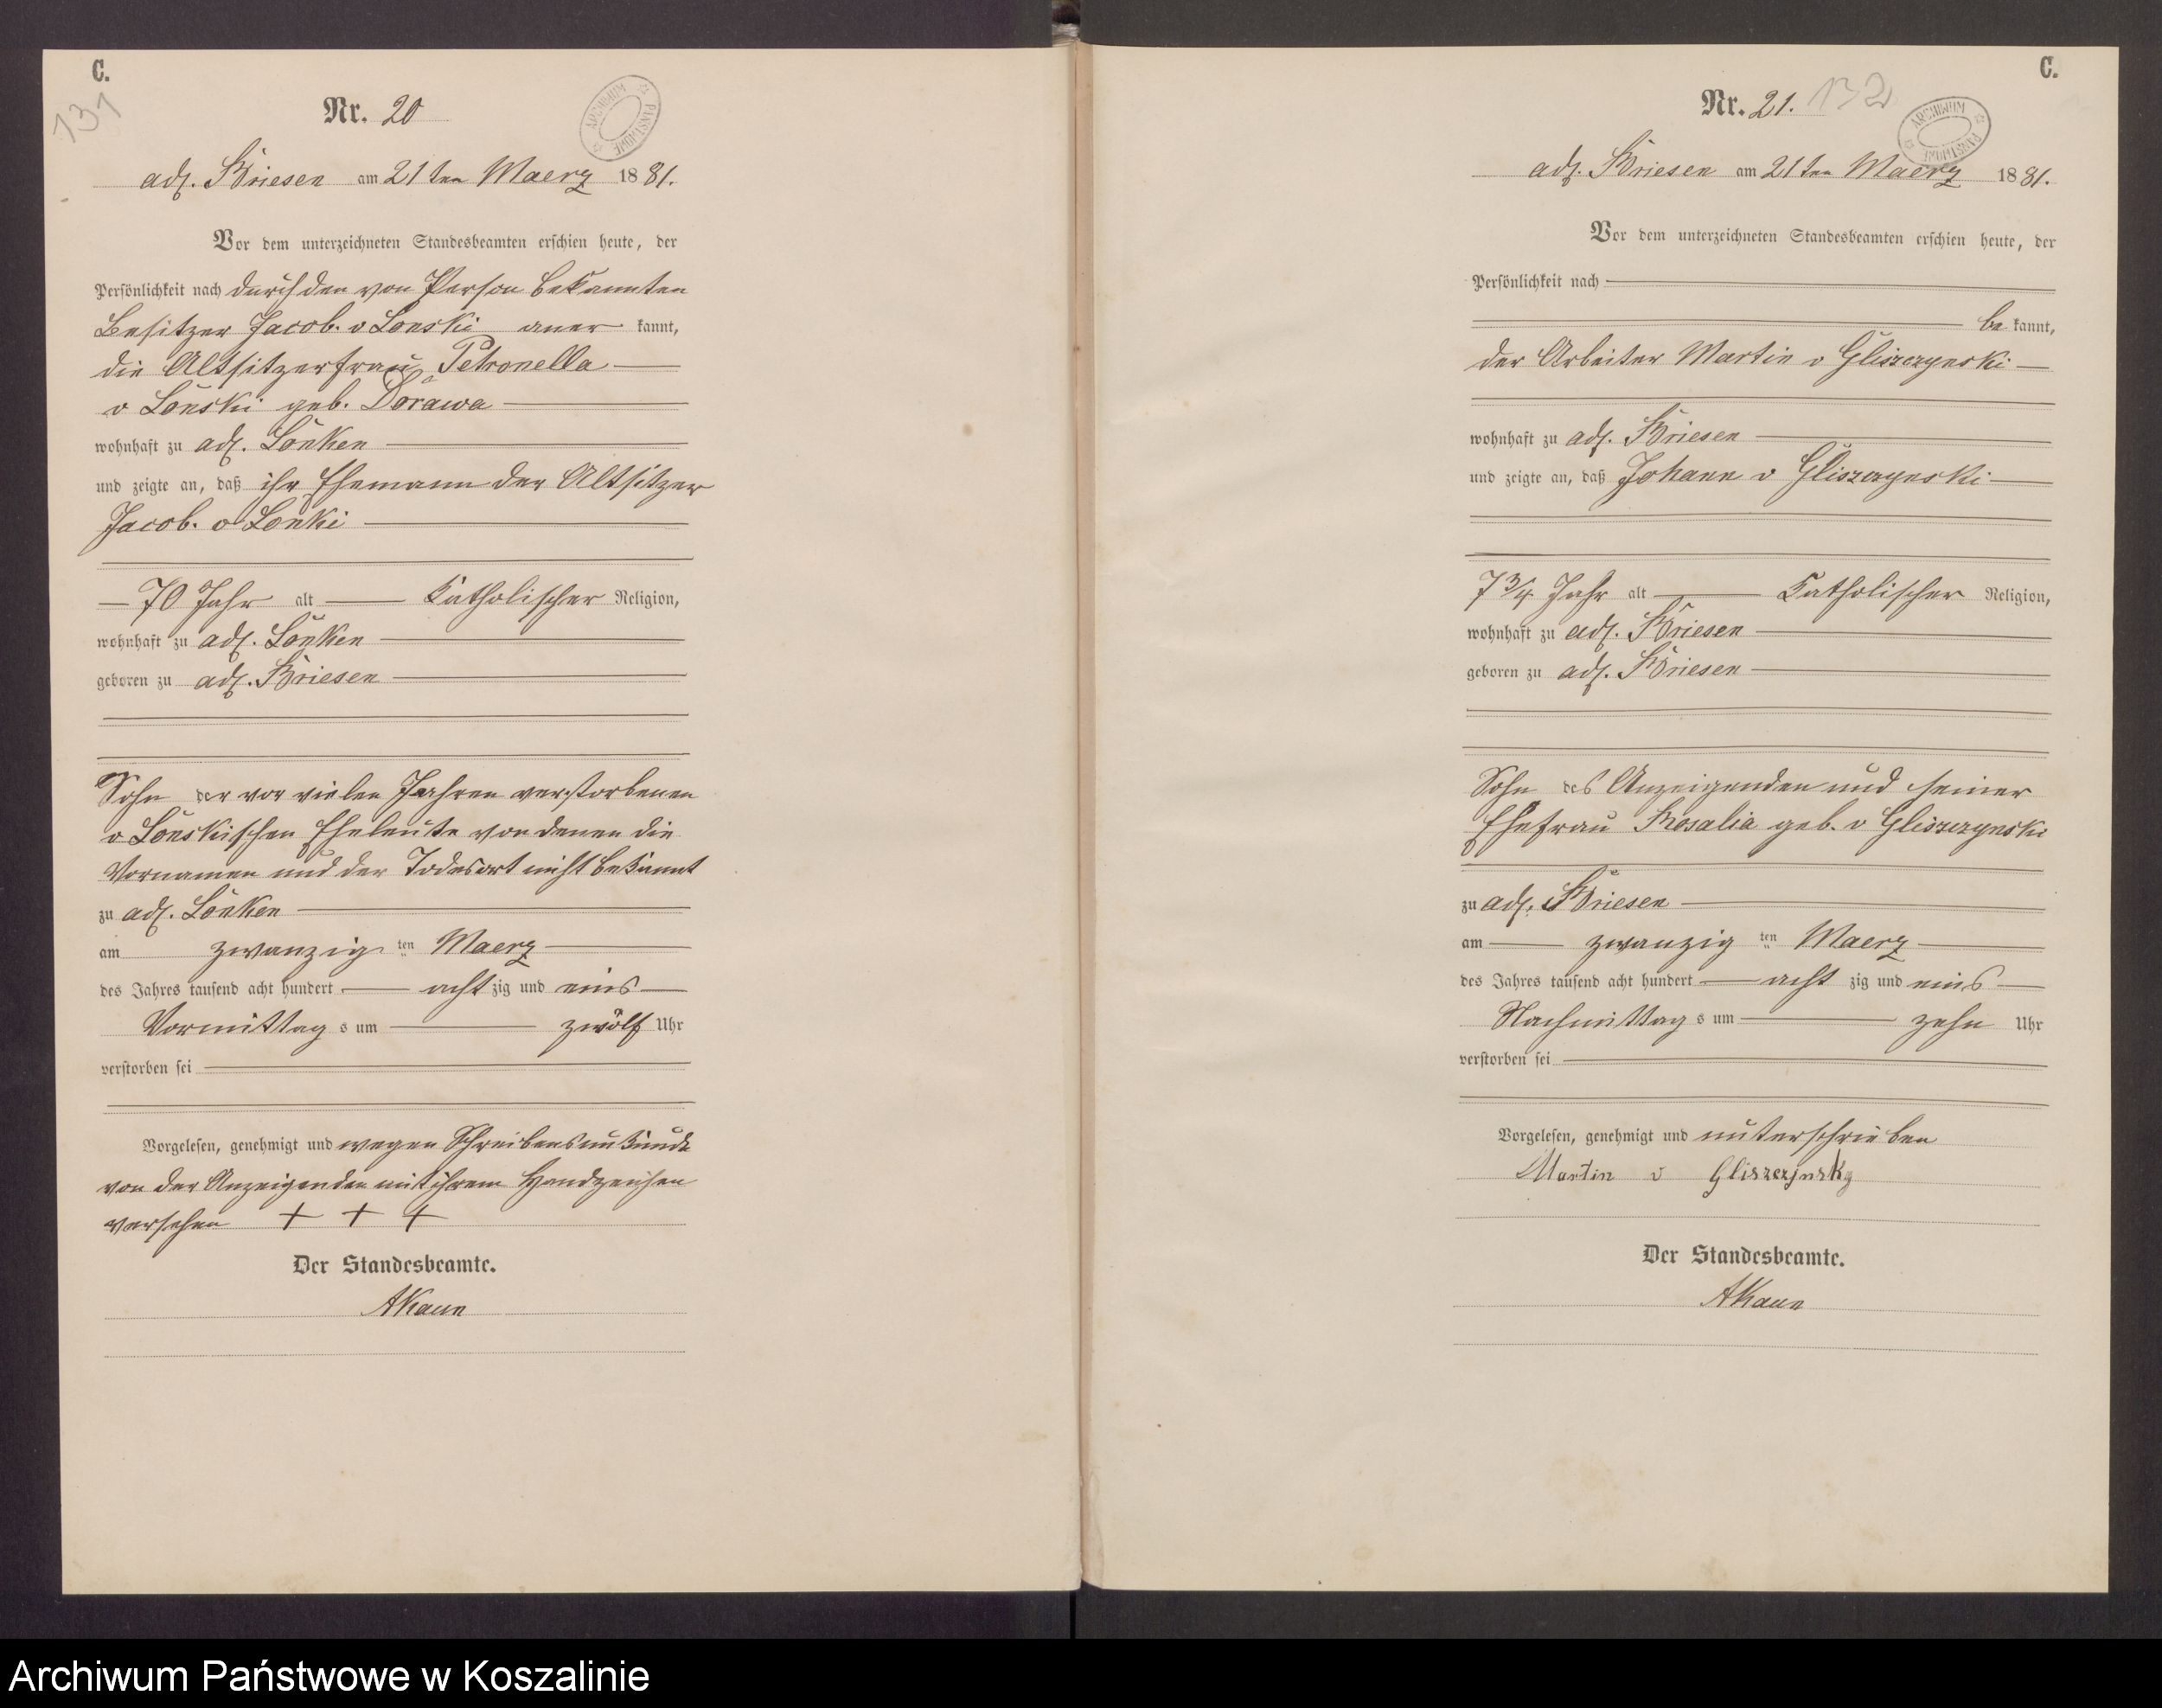 C.
131
Nr. 20
ARCHIWUM PAŃSTWOWE
adl. Briesen am 21ten Maerz 1881.
Vor dem unterzeichneten Standesbeamten erschien heute, der
Persönlichkeit nach durch den von Person bekannten
Besitzer Jacob. v Lonski aner kannt,
die Altsitzerfrau Petronella
v Lonski geb. Dorawa
wohnhaft zu adl. Lonken
und zeigte an, daß ihr Ehemann der Altsitzer
Jacob. v Lonki
70 Jahr alt Katholischer Religion,
wohnhaft zu adl. Lonken
geboren zu adl. Briesen
Sohn der vor vielen Jahren verstorbenen
v Lonskischen Eheleute von denen die
Vornamen und der Todesort nicht bekannt
zu adl. Lonken
am zwanzig ten Maerz
des Jahres tausend acht hundert acht zig und eins
Vormittag s um zwölf Uhr
verstorben sei
Vorgelesen, genehmigt und wegen Schreibensunkunde
von der Anzeigenden mit ihrem Handzeichen
versehen + + +
Der Standesbeamte.
AKaun
C.
Nr. 21. 132
ARCHIWUM PAŃSTWOWE
adl. Briesen am 21ten Maerz 1881.
Vor dem unterzeichneten Standesbeamten erschien heute, der
Persönlichkeit nach
be kannt,
der Arbeiter Martin v Gliszczynski
wohnhaft zu adl. Briesen
und zeigte an, daß Johann v Gliszczynski
7 3/4 Jahr alt Katholischer Religion,
wohnhaft zu adl. Briesen
geboren zu adl. Briesen
Sohn des Anzeigenden und seiner
Ehefrau Rosalia geb. v Gliszczynski
zu adl. Briesen
am zwanzig ten Maerz
des Jahres tausend acht hundert acht zig und eins
Nachmittag s um zehn Uhr
verstorben sei
Vorgelesen, genehmigt und unterschrieben
Martin v Gliszczynsky
Der Standesbeamte.
AKaun
Archiwum Państwowe w Koszalinie